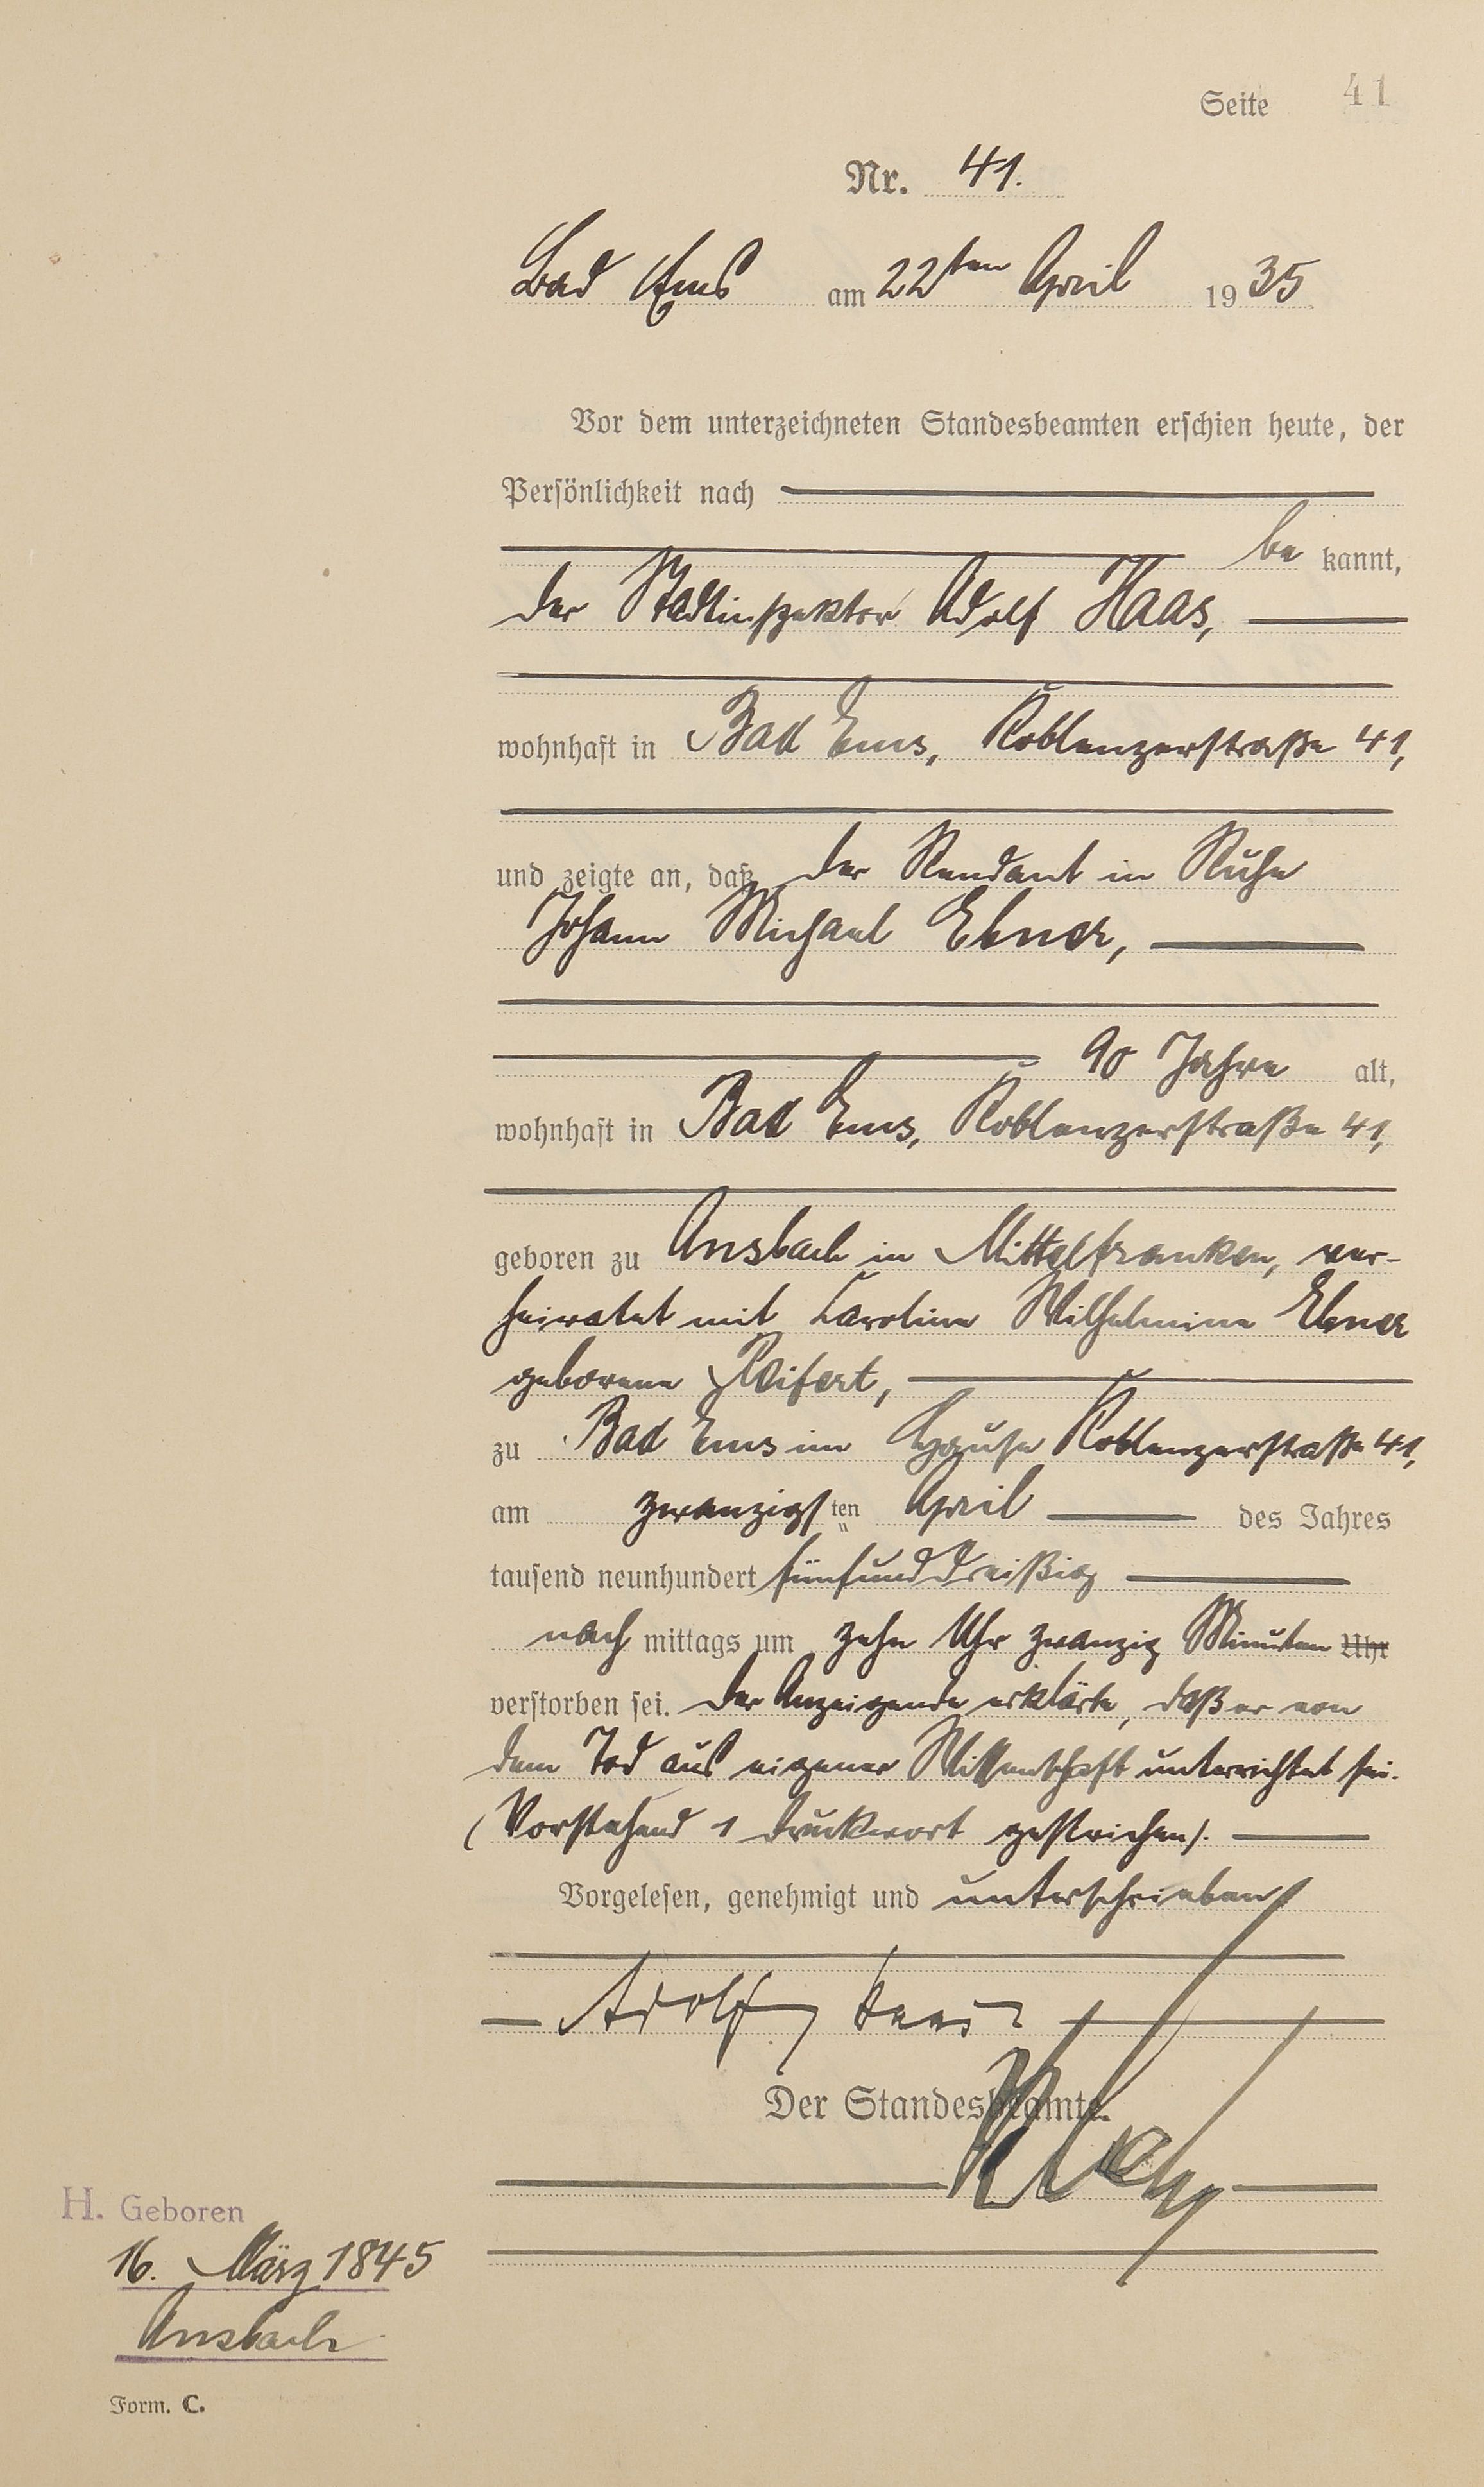 Seite 41
Nr. 41.
Bad Ems am 22ten April 1935
Vor dem unterzeichneten Standesbeamten erschien heute, der
Persönlichkeit nach
be kannt,
der Stadtinspektor Adolf Haas,
wohnhaft in Bad Ems, Koblenzerstraße 41,
und zeigte an, daß der Rendant in Ruhe
Johann Michael Ebner,
90 Jahre alt,
wohnhaft in Bad Ems, Koblenzerstraße 41,
geboren zu Ansbach in Mittelfranken, ver-
heiratet mit Karoline Wilhelmine Ebner
geborene Reifert,
zu Bad Ems im Hause Koblenzerstraße 41,
am zwanzigsten April des Jahres
tausend neunhundert fünfunddreißig
nach mittags um zehn Uhr zwanzig Minuten Uhr
verstorben sei. Der Anzeigende erklärte, daß er von
dem Tod aus eigener Wissenschaft unterrichtet sei.
(Vorstehend 1 Druckwort gestrichen).
Vorgelesen, genehmigt und unterschrieben
Adolf Haas
Der Standesbeamte.
H. Geboren
16. März 1845
Ansbach
Form. C.